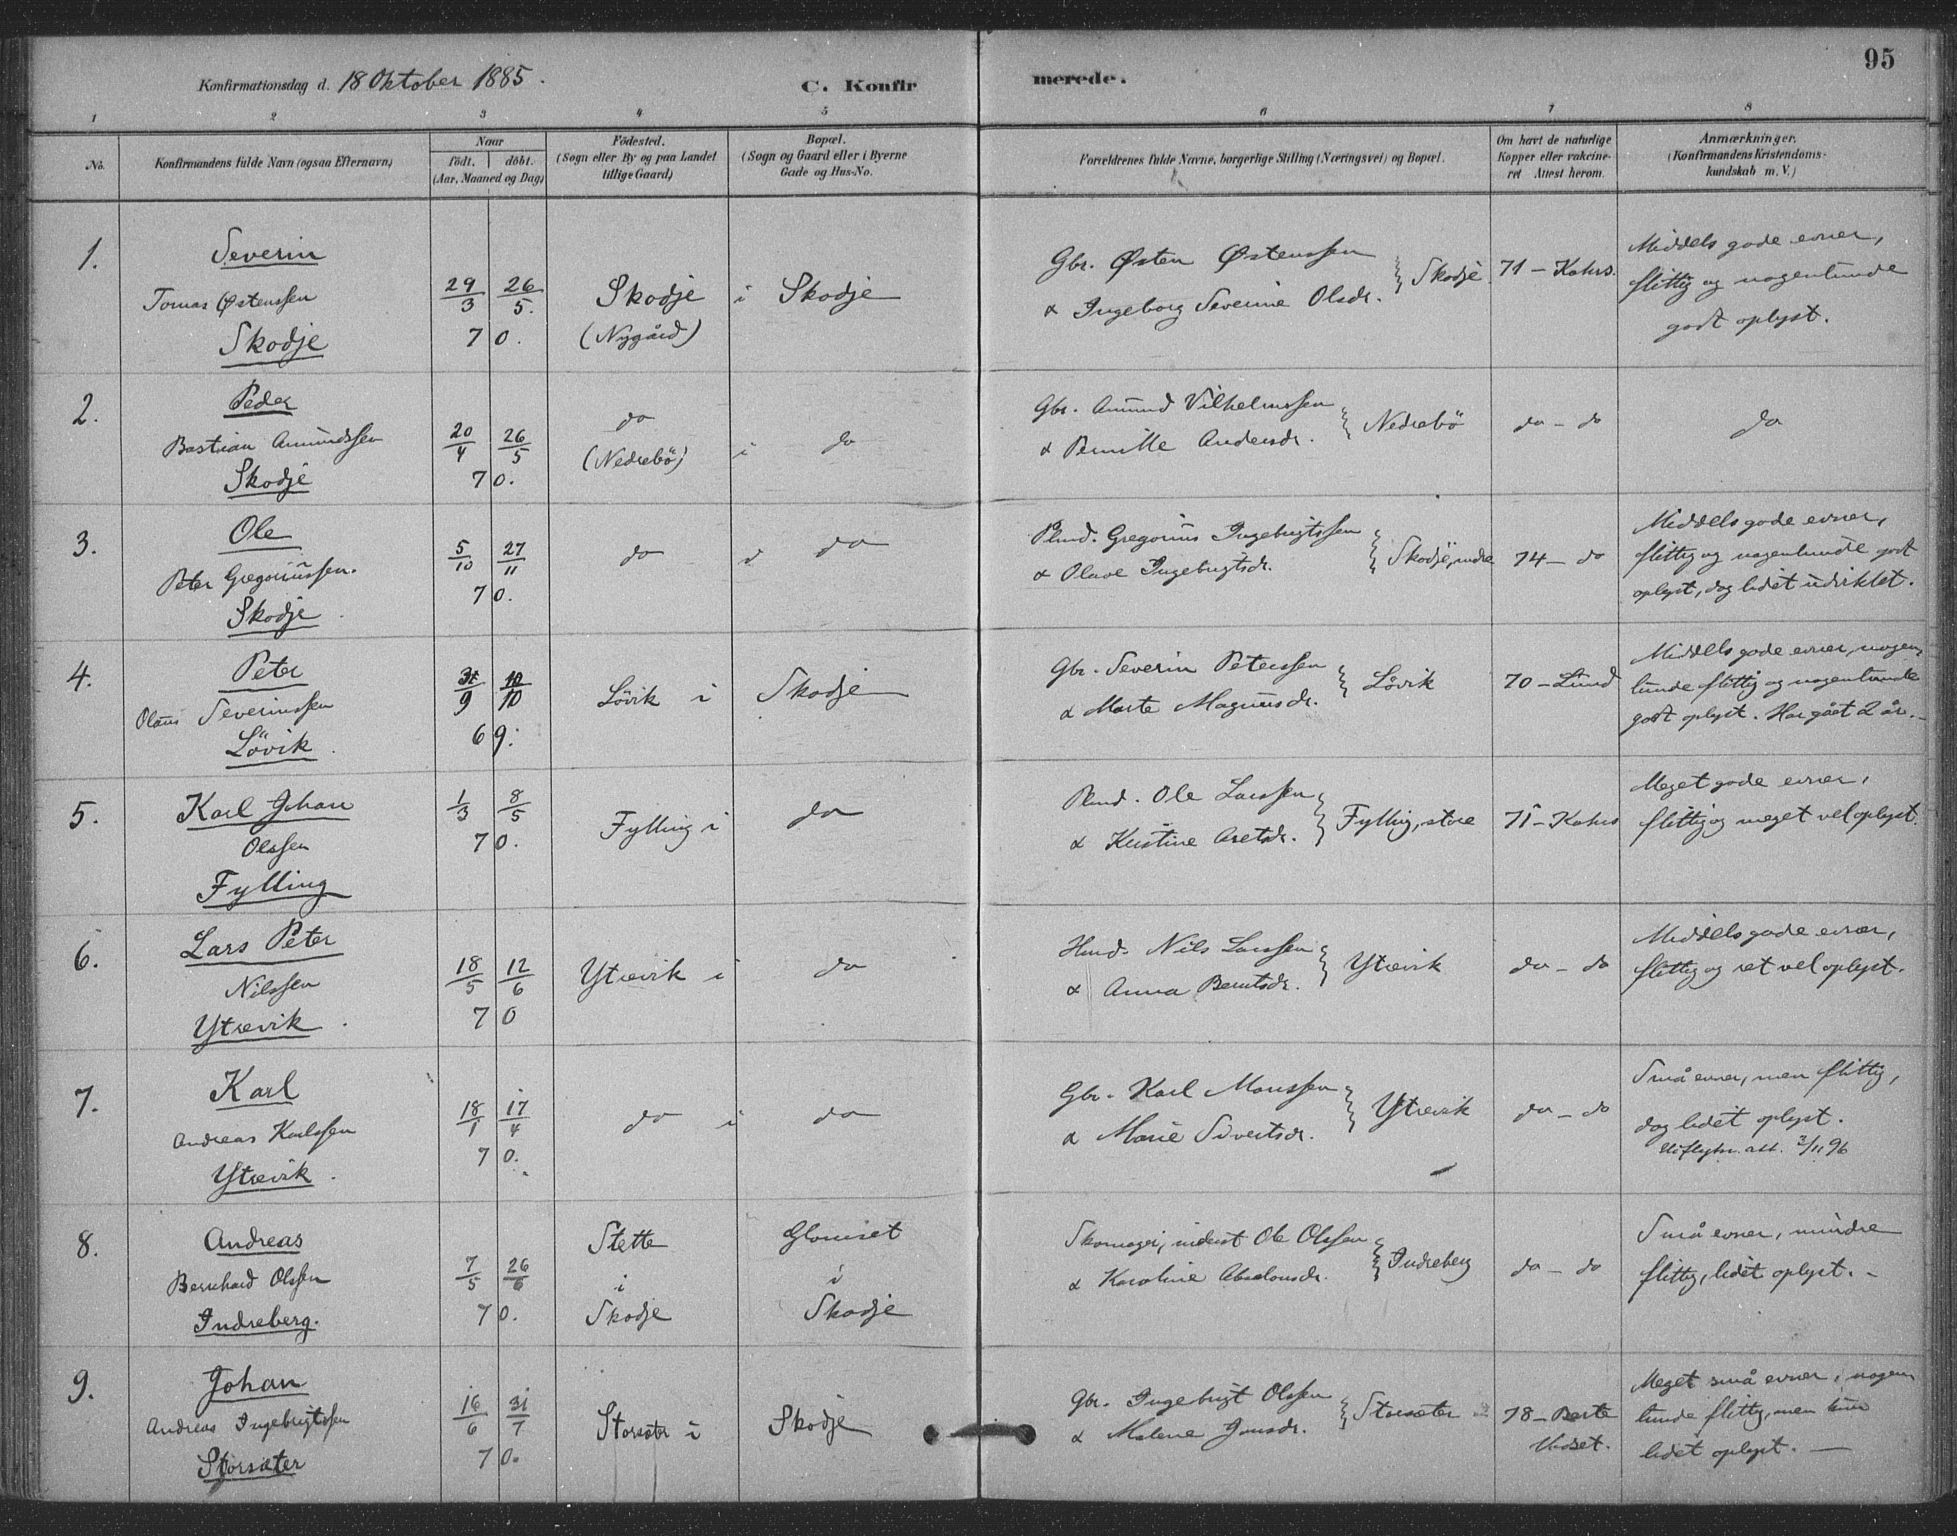 95
Konfirmationsdag d. 18 Oktober 1885.
C. Konfirmerede.
1 2 3 4 5 6 7 8
No.
Konfirmandens fulde Navn (ogsaa Efternavn)
Naar
födt. döbt.
(Aar, Maaned og Dag)
Födested.
(Sogn eller By og paa Landet
tillige Gaard)
Bopæl.
(Sogn og Gaard eller i Byerne
Gade og Hus-No.
Forældrenes fulde Navne, borgerlige Stilling (Næringsvei) og Bopæl.
Om havt de naturlige
Kopper eller vakcine-
ret Attest herom.
Anmærkninger.
(Konfirmandens Kristendoms-
kundskab m. V.)
1.
Severin
Tomas Østenssen
Skodje
29/3 26/5.
70.
Skodje i
(Nygård)
Skodje
Gbr. Østen Østenssen
& Ingeborg Severine Olsdr.
Skodje
71 - Kahrs.
Middels gode evner,
flittig og nogenlunde
godt oplyst.
2.
Peder
Bastian Amundssen
Skodje
20/4 26/5
70.
do
(Nedrebö) i
do
Gbr. Amund Vilhelmssen
& Pernille Andersdr.
Nedrebö
do - do
do
3.
Ole
Peter Gregoriussen.
Skodje
5/10 27/11
70.
do
do
Plmd. Gregorius Ingebrigtssen
& Olave Ingebrigtsdr.
Skodje, indre
74 - do
Middels gode evner,
flittig og nogenlunde godt
oplyst, dog lidet udviklet.
4.
Peter
Olaus Severinssen
Lövik
9 10/10
69.
Lövik i
Skodje
Gbr. Severin Peterssen
& Marte Magnusdr.
Lövik
70 - Lund
Middels gode evner, nogen-
lunde flittig og nogenlunde
godt oplyst. Har gået 2 år.
5.
Karl Johan
Olssen
Fylling
1/3 8/5
70.
Fylling i
do
Plmd. Ole Larssen
& Kristine Aretsdr.
Fylling, store
71 - Kahrs
Meget gode evner,
flittig og meget vel oplyst.
6.
Lars Peter
Nilssen
Ytrevik
18/5 12/6
70
Ytrevik i
do
Hmd. Nils Larssen
& Anna Berntsdr.
Ytrevik
do - do
Middels gode evner,
flittig og ret vel oplyst.
7.
Karl
Andreas Karlssen
Ytrevik
18/1 17/4
70.
do i
do
Gbr. Karl Monssen
& Marie Sivertsdr.
Ytrevik
do - do
Små evner, men flittig,
dog lidet oplyst.
Utflytn. att. 3/11 96
8.
Andreas
Bernhard Olssen
Indreberg.
7/5 26/6
70.
Stette
i
Skodje
Glomset
i
Skodje
Skomager, inderst Ole Olssen
& Karoline Absalonsdr.
Indreberg
do - do
Små evner, mindre
flittig, lidet oplyst. -
9.
Johan
Andreas Ingebrigtssen
Storsæter
16/6 31/7
70.
Storsæter i
Skodje
Gbr. Ingebrigt Olssen
& Malene Jonsdr.
Storsæter
78 - Berte
Uset.
Meget små evner, nogen
lunde flittig, men kun
lidet oplyst. -